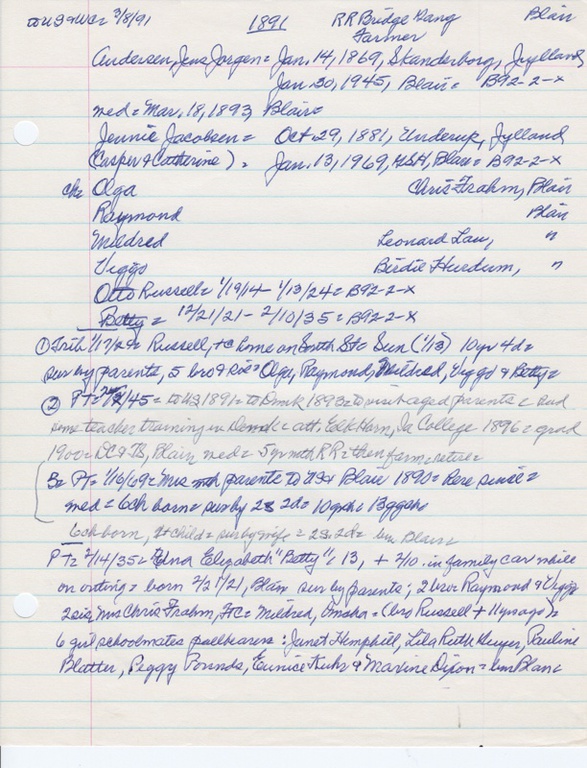 to US & WC 3/8/91 1891 RR Bridge Gang Blair
Farmer
Andersen, Jens Jorgen = Jan. 14, 1869, Skanderborg, Jylland
Jan. 30, 1945, Blair = B92-2-X
med = Mar. 18, 1893, Blair =
Jennie Jacobsen = Oct. 29, 1881, Jylland
(Casper & Catherine) = Jan. 13, 1969, Blair = B92-2-X
ch = Olga Chris Frahm, Blair
Raymond Blair
Mildred Leonard Lau, "
Viggo Birdie Hurdum, "
Otto Russell = 1/19/14 - 1/13/24 = B92-2-X
Betty = 12/21/21 - 2/10/35 = B92-2-X
① Trib 1/17/24 = Russell, + @ home on South St @ Sun (1/13) 10 yr 4d =
sur by parents, 5 bro & sis = Olga, Raymond, Mildred, Viggo & Betty =
② PT = 2/45 = to US 1891 = to Dmk 1893 = to visit aged parents = had
some teacher training in Denmk = att. Elk Horn, Ia College 1896 = grad
1900 = DC & TS, Blair, med = 5 yr with RR = then farm = retire =
3 = PT = 1/16/69 = Mrs with parents to US & Blair 1890 = Here since =
med = 6 ch born = sur by 2s 2d = 10 gch = 13 ggch =
6 ch born, child = sur by wife = 2s. 2d = bur Blair =
PT = 2/14/35 = Edna Elizabeth "Betty" = 13, + 2/10. in family car while
on outing = born 2/21/21, Blair sur by parents; 2 bro = Raymond & Viggo
2 sis, Mrs Chris Frahm, TC = Mildred, Omaha = (bro Russell + 11 yrs ago) =
6 girl schoolmates pallbearers: Janet Hemphill, Lila Ruth Kuyer, Pauline
Blatter, Peggy Pounds, Eunice Kuhr & Maxine Dixon = bur Blair